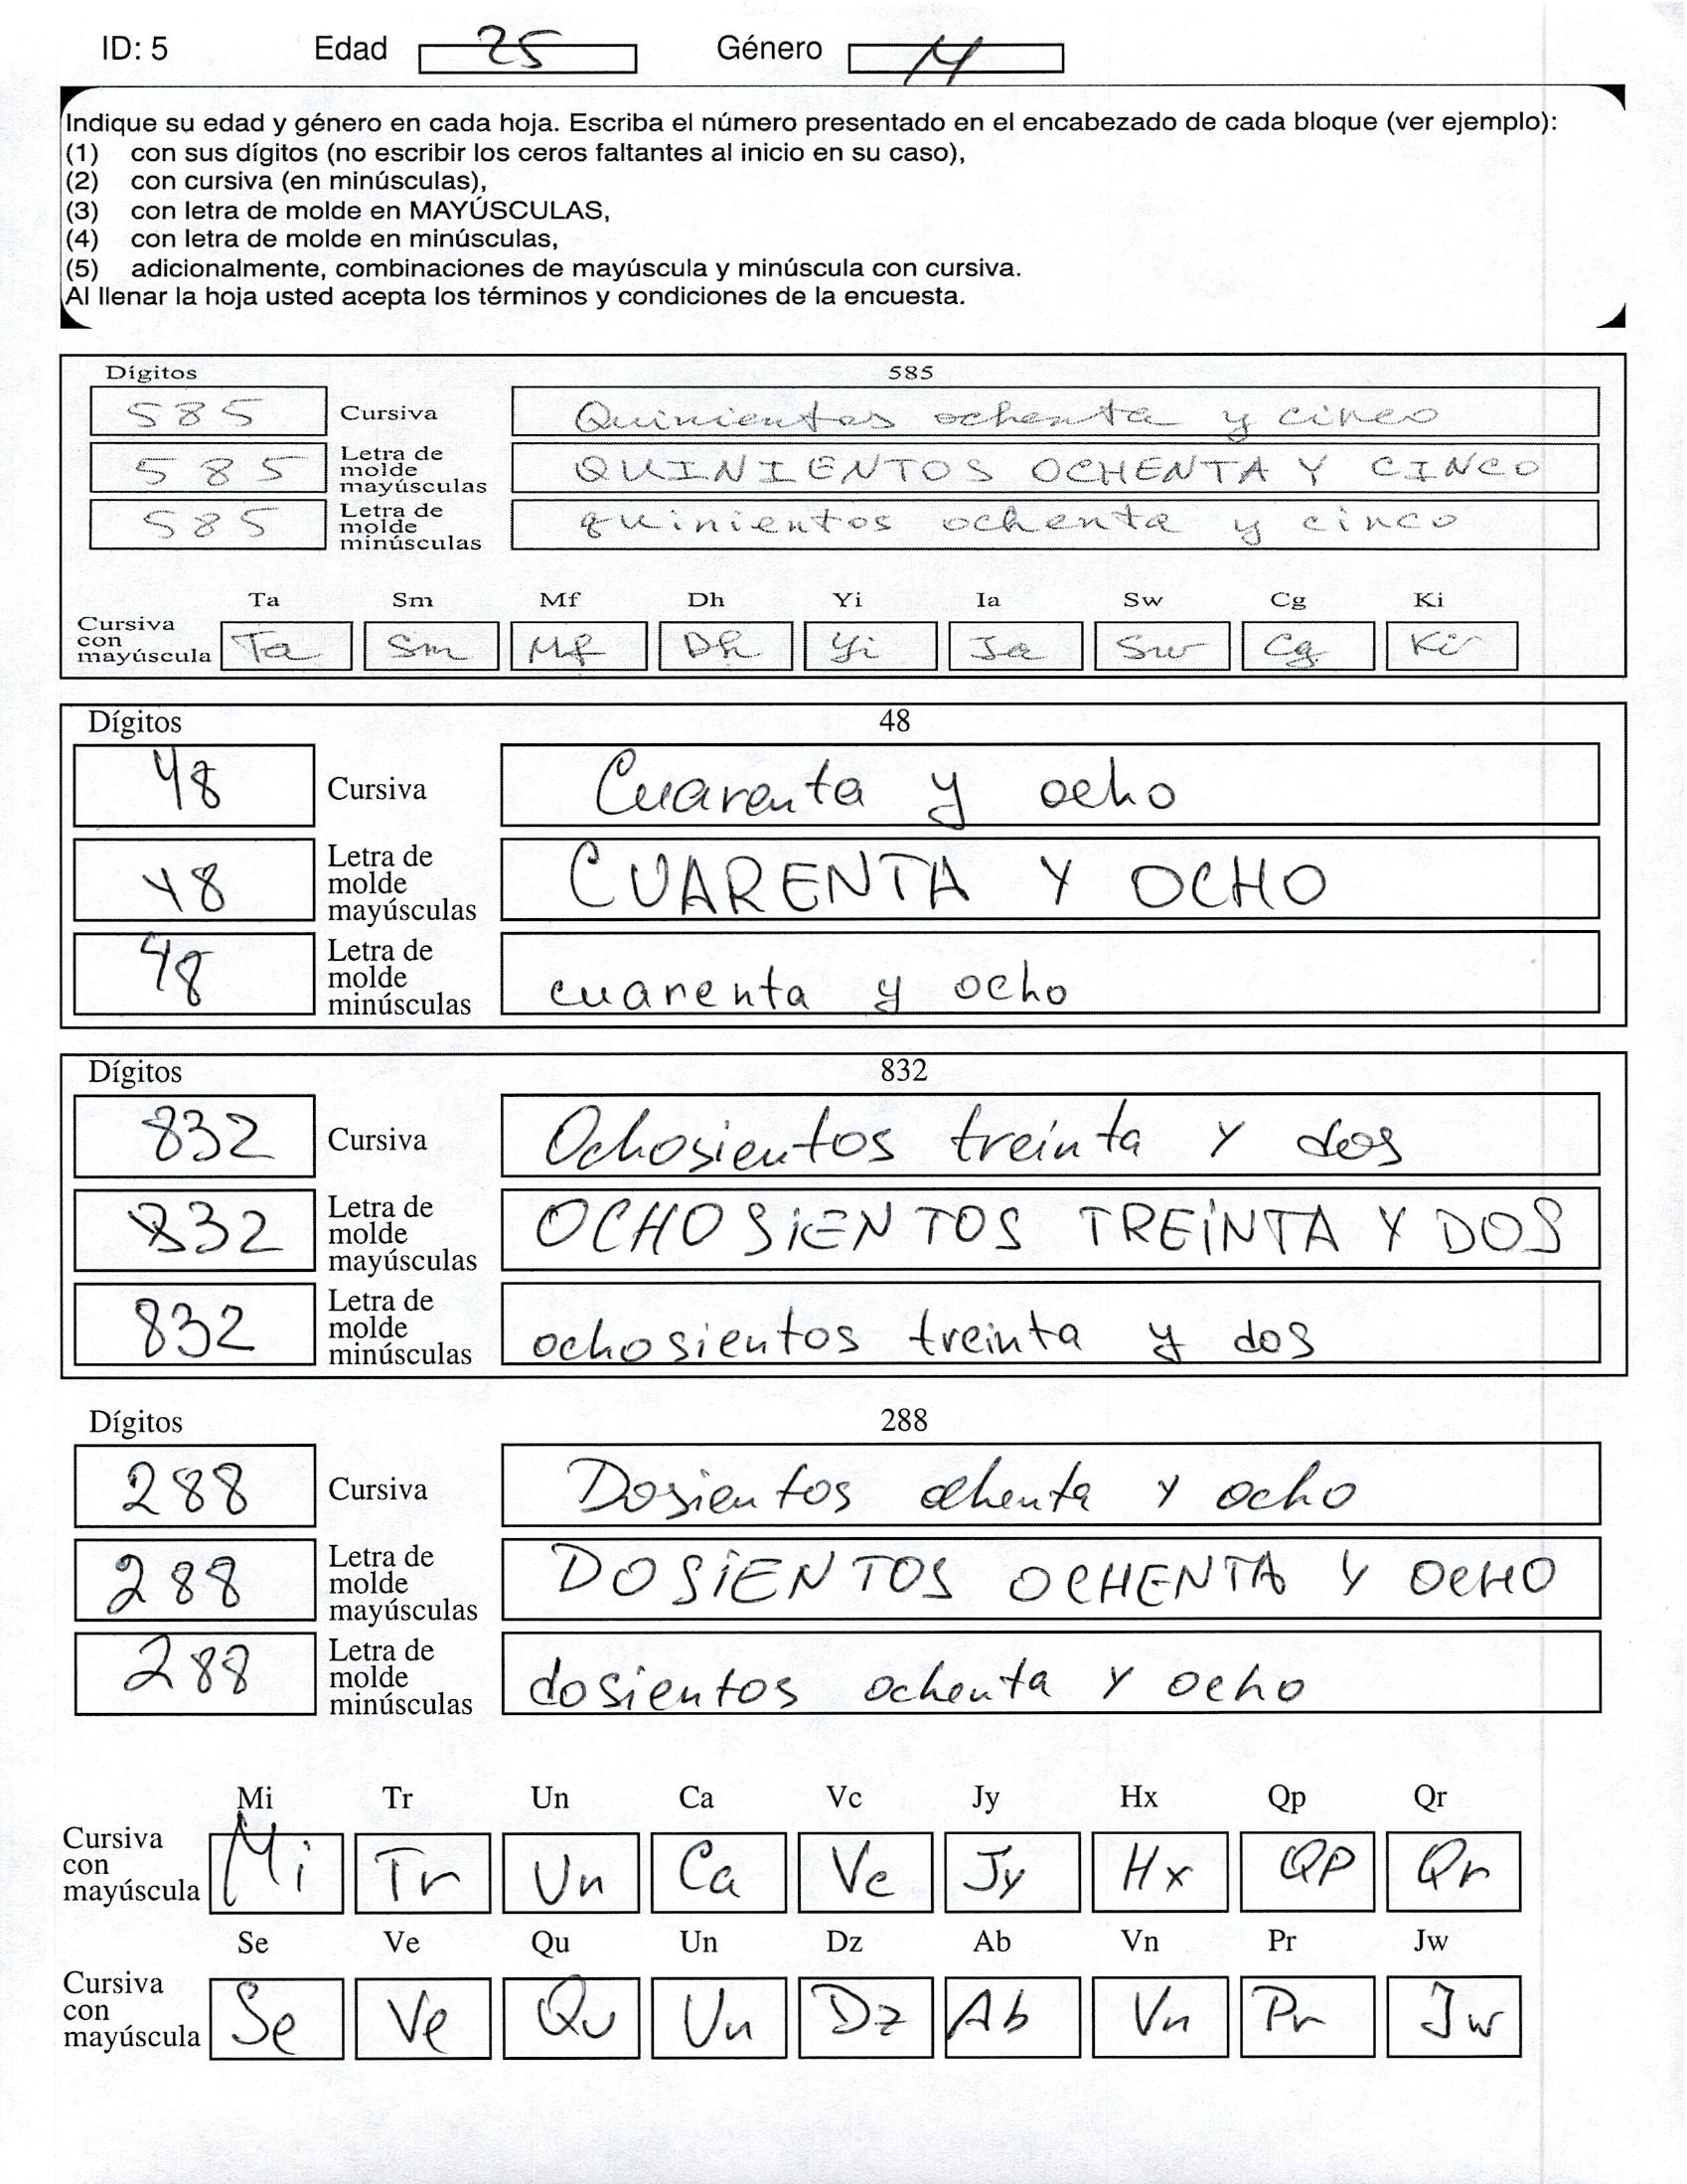 ID: 5 Edad 25 Género M
Indique su edad y género en cada hoja. Escriba el número presentado en el encabezado de cada bloque (ver ejemplo):
(1) con sus dígitos (no escribir los ceros faltantes al inicio en su caso),
(2) con cursiva (en minúsculas),
(3) con letra de molde en MAYÚSCULAS,
(4) con letra de molde en minúsculas,
(5) adicionalmente, combinaciones de mayúscula y minúscula con cursiva.
Al llenar la hoja usted acepta los términos y condiciones de la encuesta.
Dígitos 585
585 Cursiva Quinientos ochenta y cinco
585 Letra de molde mayúsculas QUINIENTOS OCHENTA Y CINCO
585 Letra de molde minúsculas quinientos ochenta y cinco
Ta Sm Mf Dh Yi Ia Sw Cg Ki
Cursiva con mayúscula Ta Sm Mf Dh Yi Ia Sw Cg Ki
Dígitos 48
48 Cursiva Cuarenta y ocho
48 Letra de molde mayúsculas CUARENTA Y OCHO
48 Letra de molde minúsculas cuarenta y ocho
Dígitos 832
832 Cursiva Ochosientos treinta y dos
832 Letra de molde mayúsculas OCHOSiENTOS TREiNTA Y DOS
832 Letra de molde minúsculas ochosientos treinta y dos
Dígitos 288
288 Cursiva Dosientos ochenta y ocho
288 Letra de molde mayúsculas DOSiENTOS OCHENTA Y OCHO
288 Letra de molde minúsculas dosientos ochenta y ocho
Mi Tr Un Ca Vc Jy Hx Qp Qr
Cursiva con mayúscula Mi Tr Un Ca Vc Jy Hx Qp Qr
Se Ve Qu Un Dz Ab Vn Pr Jw
Cursiva con mayúscula Se Ve Qu Un Dz Ab Vn Pr Jw